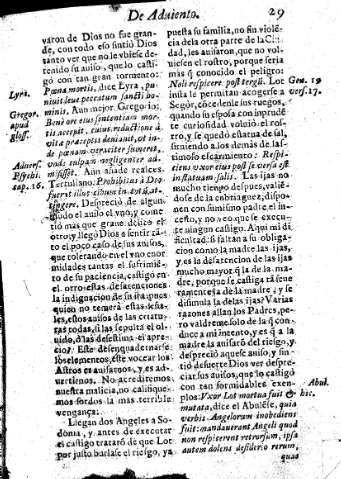 De Adviento. 29
varon de Dios no fue gran-
de, con todo eso sintió Dios
tanto ver que no le vbiese de-
tenido su aviso, que lo casti-
gó con tan gran tormento:
Lyra. Pœna mortis, dice Lyra,
Gregor. minis. Aun mejor Gregorio;
apud
gloss.
Advers.
Psychi.
cap. 16.
Tertuliano. Prohibitas à Deo
Desprecio de algun
modo el auiso el vno, y come
tió mas que grave delito el
otro; y llegó Dios à sentir tã-
to el poco caso de sus avisos,
que tolerando en el vno enor
midades tantas el sufrimiẽ-
to de su paciencia, castigó en
el otro estas desatenciones
la indignacion de su ira; pues
quien no temerá estas seña-
les, estos avisos de las criatu-
ras todas, si las sepulta el ol-
vido, ò las desestima el apre-
cio? Este desenquadernarse
los elementos, este vocear los
Astros es avisarnos, y es ad-
vertirnos. No acreditemos
nuestra malicia, no califique-
mos sordos la mas terrible
vengança.
Llegan dos Angeles a So-
doma, y antes de executar
el castigo trataró de que Lot
por justo burlase el riesgo, ya
puesta su familia, no sin violẽ
cia dela otra parte de la Ciu-
dad, les avisaron, que no vol-
viesen el rostro, porque seria
mas q̃ conocido el peligro:
Noli respicere post tergũ. Lot Gen. 19
insta le permitan acogerse a vers. 17.
Segor, cõcedenle sus ruegos,
quando su esposa con inprudẽ
te curiosidad volvió el ros-
tro, y se quedó estatua de sal,
sirviendo a los demás de las-
timoso escarmiento: Respi-
ciens vxor eius post se versa est
in statuam salis. Las ijas no
mucho tiempo despues, valiẽ
dose de la enbriaguez, dispo-
nen con su mismo padre el in-
cesto, y no leo que se execu-
te ningun castigo. Aqui mi di
ficultad, si faltan a su obliga-
cion como la madre las ijas,
y es la desatencion de las ijas
mucho mayor q̃ la de la ma-
dre, porque se castiga tã seve
ramente la de la madre, y se
disimula la de las ijas? Varias
razones allan los Padres, pe-
ro valdreme solo de la q̃ con-
duce a mi intento, y es q̃ a la
madre la avisarõ del riesgo, y
despreció aquese aviso, y sin-
tió de suerte Dios ver despre-
ciar sus avisos, que lo castigó
con tan formidables exem-
plos: Vxor Lot mortua fuit & Abul.
mutata, dice el Abulẽse, quia hic.
verbis Angelorum inobediens
fuit: mandauerant Angeli quod
non respiceret retrorsum, ipsa
autem dolens desiderio rerum,
quas